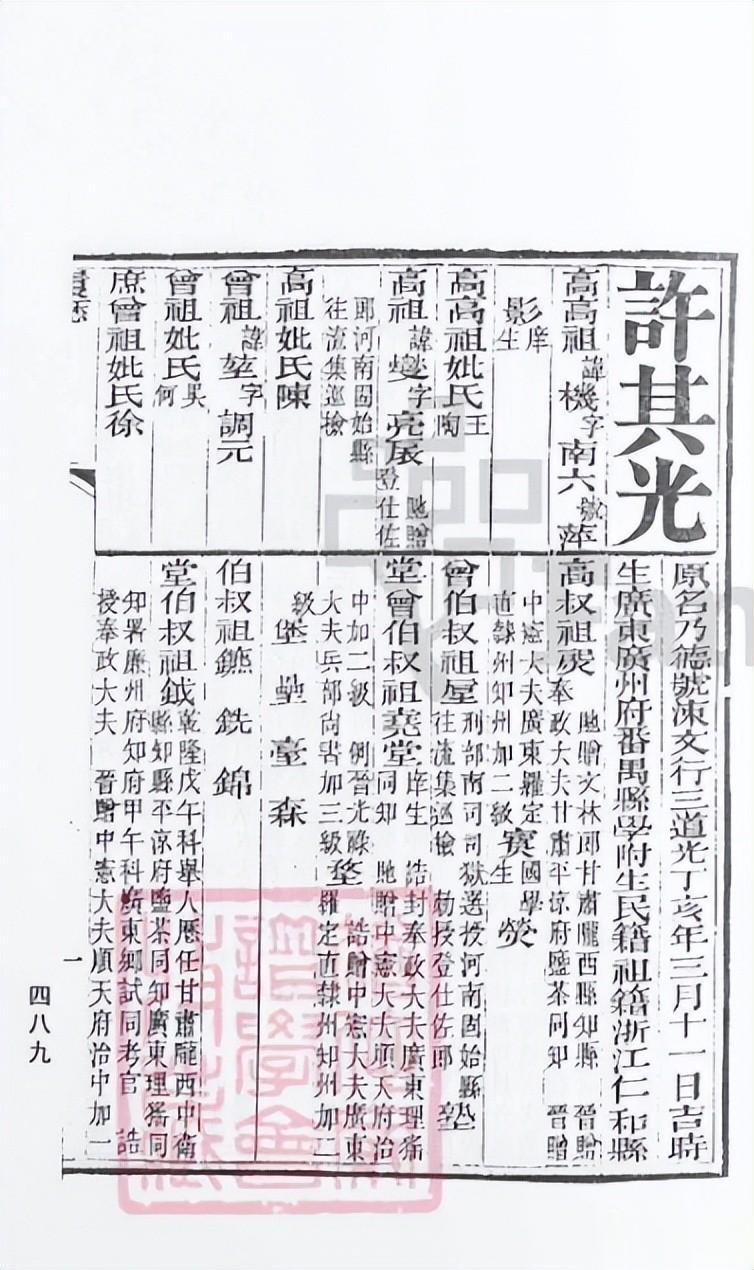 許其光
原名乃德號涑文行三道光丁亥年三月十一日吉時
生廣東廣州府番禺縣學附生民籍祖籍浙江仁和縣
高高祖諱機字南六號萍
影庠生
高高祖妣氏王陶
高祖諱燮字亮辰 馳贈登仕佐
郎河南固始縣往流集巡檢
高祖妣氏陳
曾祖諱莖字調元
曾祖妣氏吳何
庶曾祖妣氏徐
高叔祖炭 馳贈文林郎甘肅隴西縣知縣 晉贈奉政大夫甘肅平涼府鹽茶同知 晉贈
中憲大夫廣東羅定直隸州知州加二級 賓國學生 熒
曾伯叔祖屋 刑部南司司獄選授河南固始縣往流集巡檢 勅授登仕佐郎 塾
堂曾伯叔祖堯堂 庠生 誥封奉政大夫廣東理猺同知 馳贈中憲大夫順天府治
中加二級 例晉光祿大夫兵部尚書加三級 誥贈中憲大夫廣東羅定直隸州知州加二
級 堡 壘 臺 森
伯叔祖鑣 銑 錦
堂伯叔祖鉞 乾隆戊午科舉人歷任甘肅隴西中衛縣知縣平涼府鹽茶同知廣東理猺同
知署廉州府知府甲午科廣東鄉試同考官 誥授奉政大夫 晉贈中憲大夫順天府治中加一
一
四八九